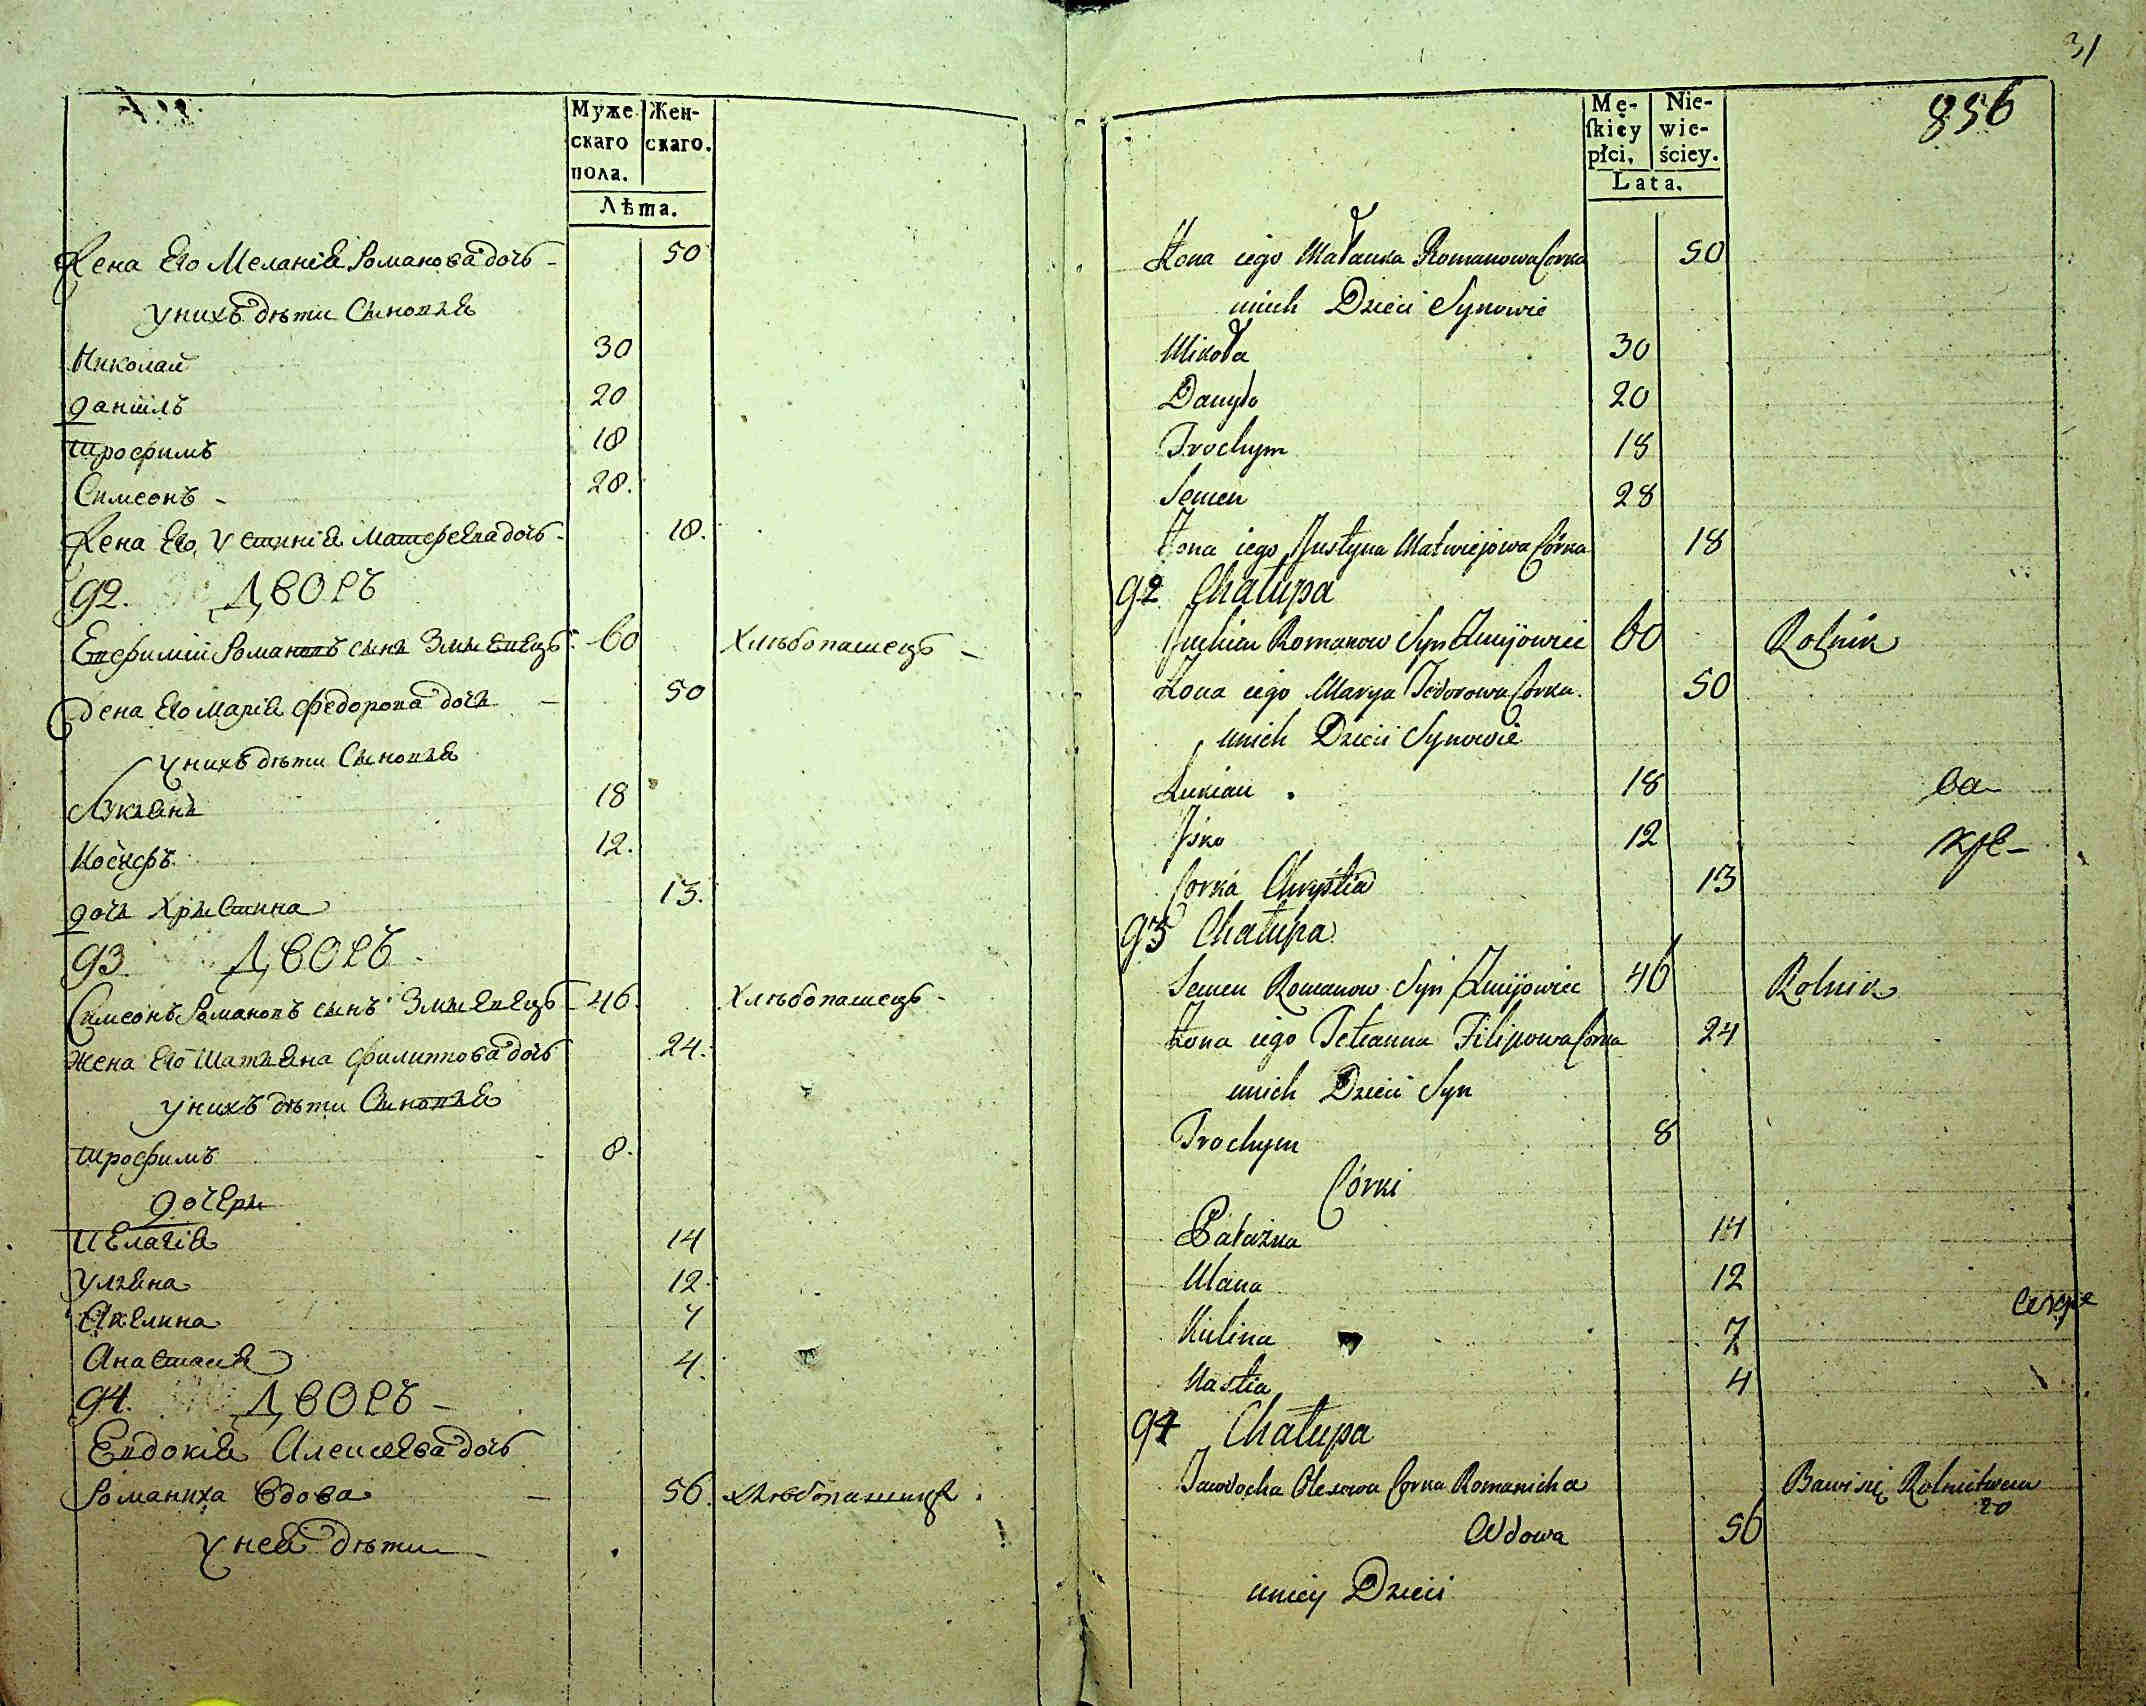 Муже Жен-
скаго скаго.
пола.
Лѣта.
Жена Его Меланія Романова дочь - 50
у нихъ дѣти Сыновья
Николай 30
Даніилъ 20
Трофимъ 18
Симеонъ - 28.
Жена Его Устинія Матфеева дочь - 18.
92. ДВОРЪ
Евфимій Романовъ сынъ Змыевецъ 60 Хлѣбопашецъ -
Жена Его Марія Федорова дочь - 50
у нихъ дѣти Сыновья
Лукьянъ 18
Иосифъ 12.
дочь Христина 13.
93. ДВОРЪ
Симеонъ Романовъ сынъ Змыевецъ 46. Хлѣбопашецъ -
Жена Его Татьяна Филиппова дочь 24.
у нихъ дѣти Сыновья
Трофимъ - 8.
дочери
Пелагія 14
Ульяна 12.
Акелина 7
Анастасія 4.
94. ДВОРЪ -
Евдокія Алексѣева дочь
Романиха вдова - 56. хлѣбопашица.
у нея дѣти
31
856
Mę- Nie-
skiéy wie-
płci, ściey.
Lata.
Żona iego Małanka Romanowa Corka 50
unich Dzieci Synowie
Mikoła 30
Danyło 20
Trochym 18
Semen 28
Żona iego Justyna Matwiejowa Córka 18
92 Chałupa
Juchim Romanow Syn Zmijowiec 60 Rolnik
Żona iego Marya Fedorowa Córka. 50
unich Dzieci Synowie
Łukian. 18
Jśko 12
Corka Chrystia 13
93 Chałupa
Semen Romanow Syn Zmijowiec 46 Rolnik
Żona iego Tetianna Filipowa Córka 24
unich Dzieci Syn
Trochym 8
Córki
Pałażka 14
Ulana 12
Kulina 7
Nastia 4
94 Chałupa
Jawdocha Olexowa Corka Romanicha Bawi się Rolnictwem
Wdowa 56
uniey Dzieci